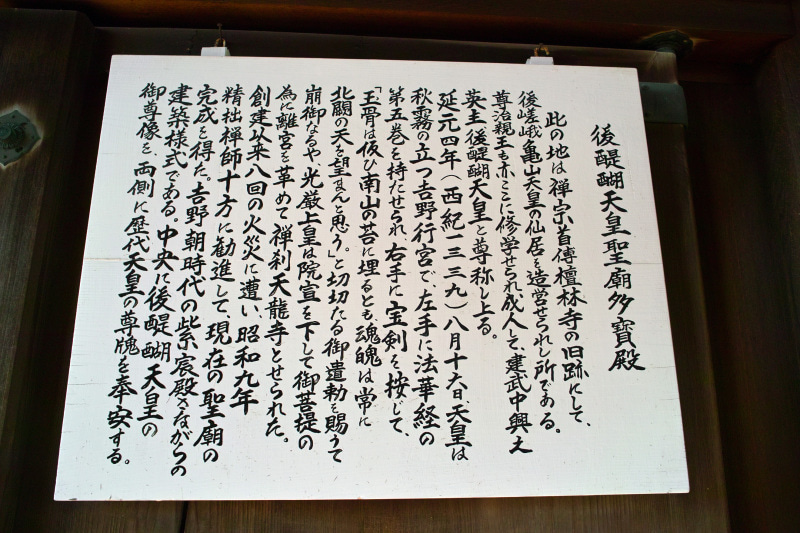 後醍醐天皇聖廟多寶殿
此の地は禅宗首傳檀林寺の旧跡にして、
後嵯峨亀山天皇の仙居を造営せられし所である。
尊治親王も亦ここに修学せられ、成人して、建武中興之
英主後醍醐天皇と尊称し上る。
延元四年(西紀一三三九)八月十六日、天皇は
秋霧の立つ𠮷野行宮で、左手に法華経の
第五巻を持たせられ右手に宝剣を按じて、
「玉骨は仮ひ南山の苔に埋るとも、魂魄は常に
北闕の天を望まんと思う。」と切切たる御遺勅を賜うて
崩御なるや、光厳上皇は院宣を下して御菩提の
為に離宮を革めて禅刹天龍寺とせられた。
創建以来八回の火災に遭い、昭和九年
精拙禅師十方に勧進して、現在の聖廟の
完成を得た。𠮷野朝時代の紫宸殿さながらの
建築様式である。中央に後醍醐天皇の
御尊像を、両側に歴代天皇の尊牌を奉安する。